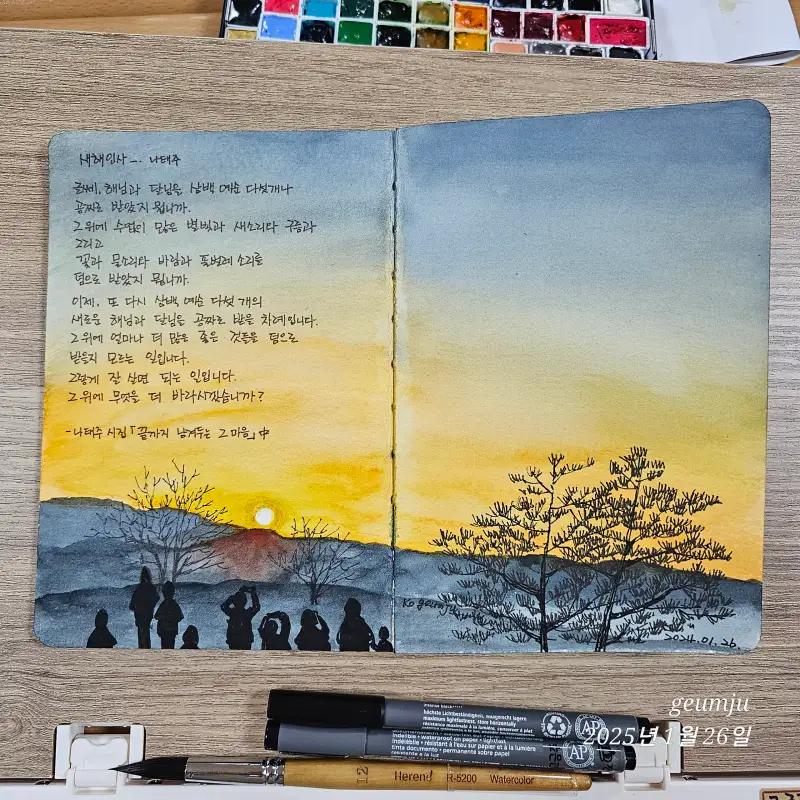 새해인사 — 나태주
글쎄, 해님과 달님을 삼백 예순 다섯개나
공짜로 받았지 뭡니까.
그 위에 수없이 많은 별빛과 새소리와 구름과
그리고
꽃과 물소리와 바람과 풀벌레 소리를
덤으로 받았지 뭡니까.
이제, 또 다시 삼백 예순 다섯 개의
새로운 해님과 달님을 공짜로 받을 차례입니다.
그 위에 얼마나 더 많은 좋은 것들을 덤으로
받을지 모르는 일입니다.
그렇게 잘 살면 되는 일입니다.
그 위에 무엇을 더 바라시겠습니까?
-나태주 시집 「끝까지 남겨두는 그 마음」 中
Ko geumju
2024.01.26.
höchste Lichtbeständigkeit, waagerecht lagern
maximum lightfastness, store horizontally
résistance maximale à la lumière, conserver à plat
indelible • waterproof on paper • lightfast
indélébile • résistant à l'eau sur papier et à la lumière
tinta documento • permanente sobre papel
AP
AP
geumju
2025년 1월 26일
12 Herend R-5200 Watercolor